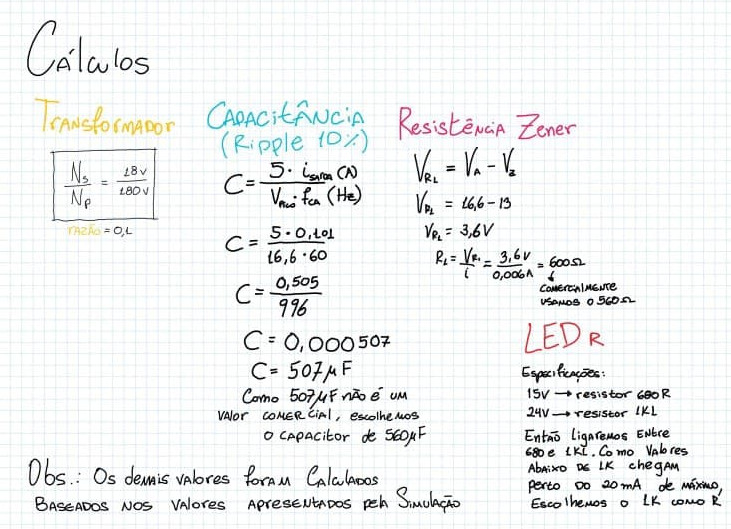 Cálculos
Transformador
Ns/Np = 18V/180V
razão = 0,1
Capacitância
(Ripple 10%)
C = 5 · isaída (A) / Vpico · fCA (Hz)
C = 5 · 0,101 / 16,6 · 60
C = 0,505 / 996
C = 0,000507
C = 507µF
Como 507µF não é um
valor comercial, escolhemos
o capacitor de 560µF
Resistência Zener
VR1 = VA - Vz
VR1 = 16,6 - 13
VR1 = 3,6V
R1 = VR1/i = 3,6V/0,006A = 600Ω
comercialmente
usamos o 560Ω
LED R
Especificações:
15V → resistor 680R
24V → resistor 1K1
Então ligaremos entre
680 e 1K1. Como valores
abaixo de 1K chegam
perto do 20mA de máximo,
Escolhemos o 1K como R
Obs.: Os demais valores foram calculados
baseados nos valores apresentados pela simulação